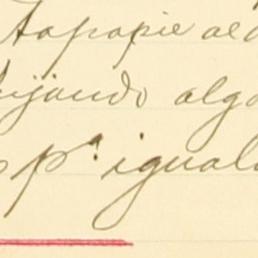 Tapapie al
fijando algo
pª igual